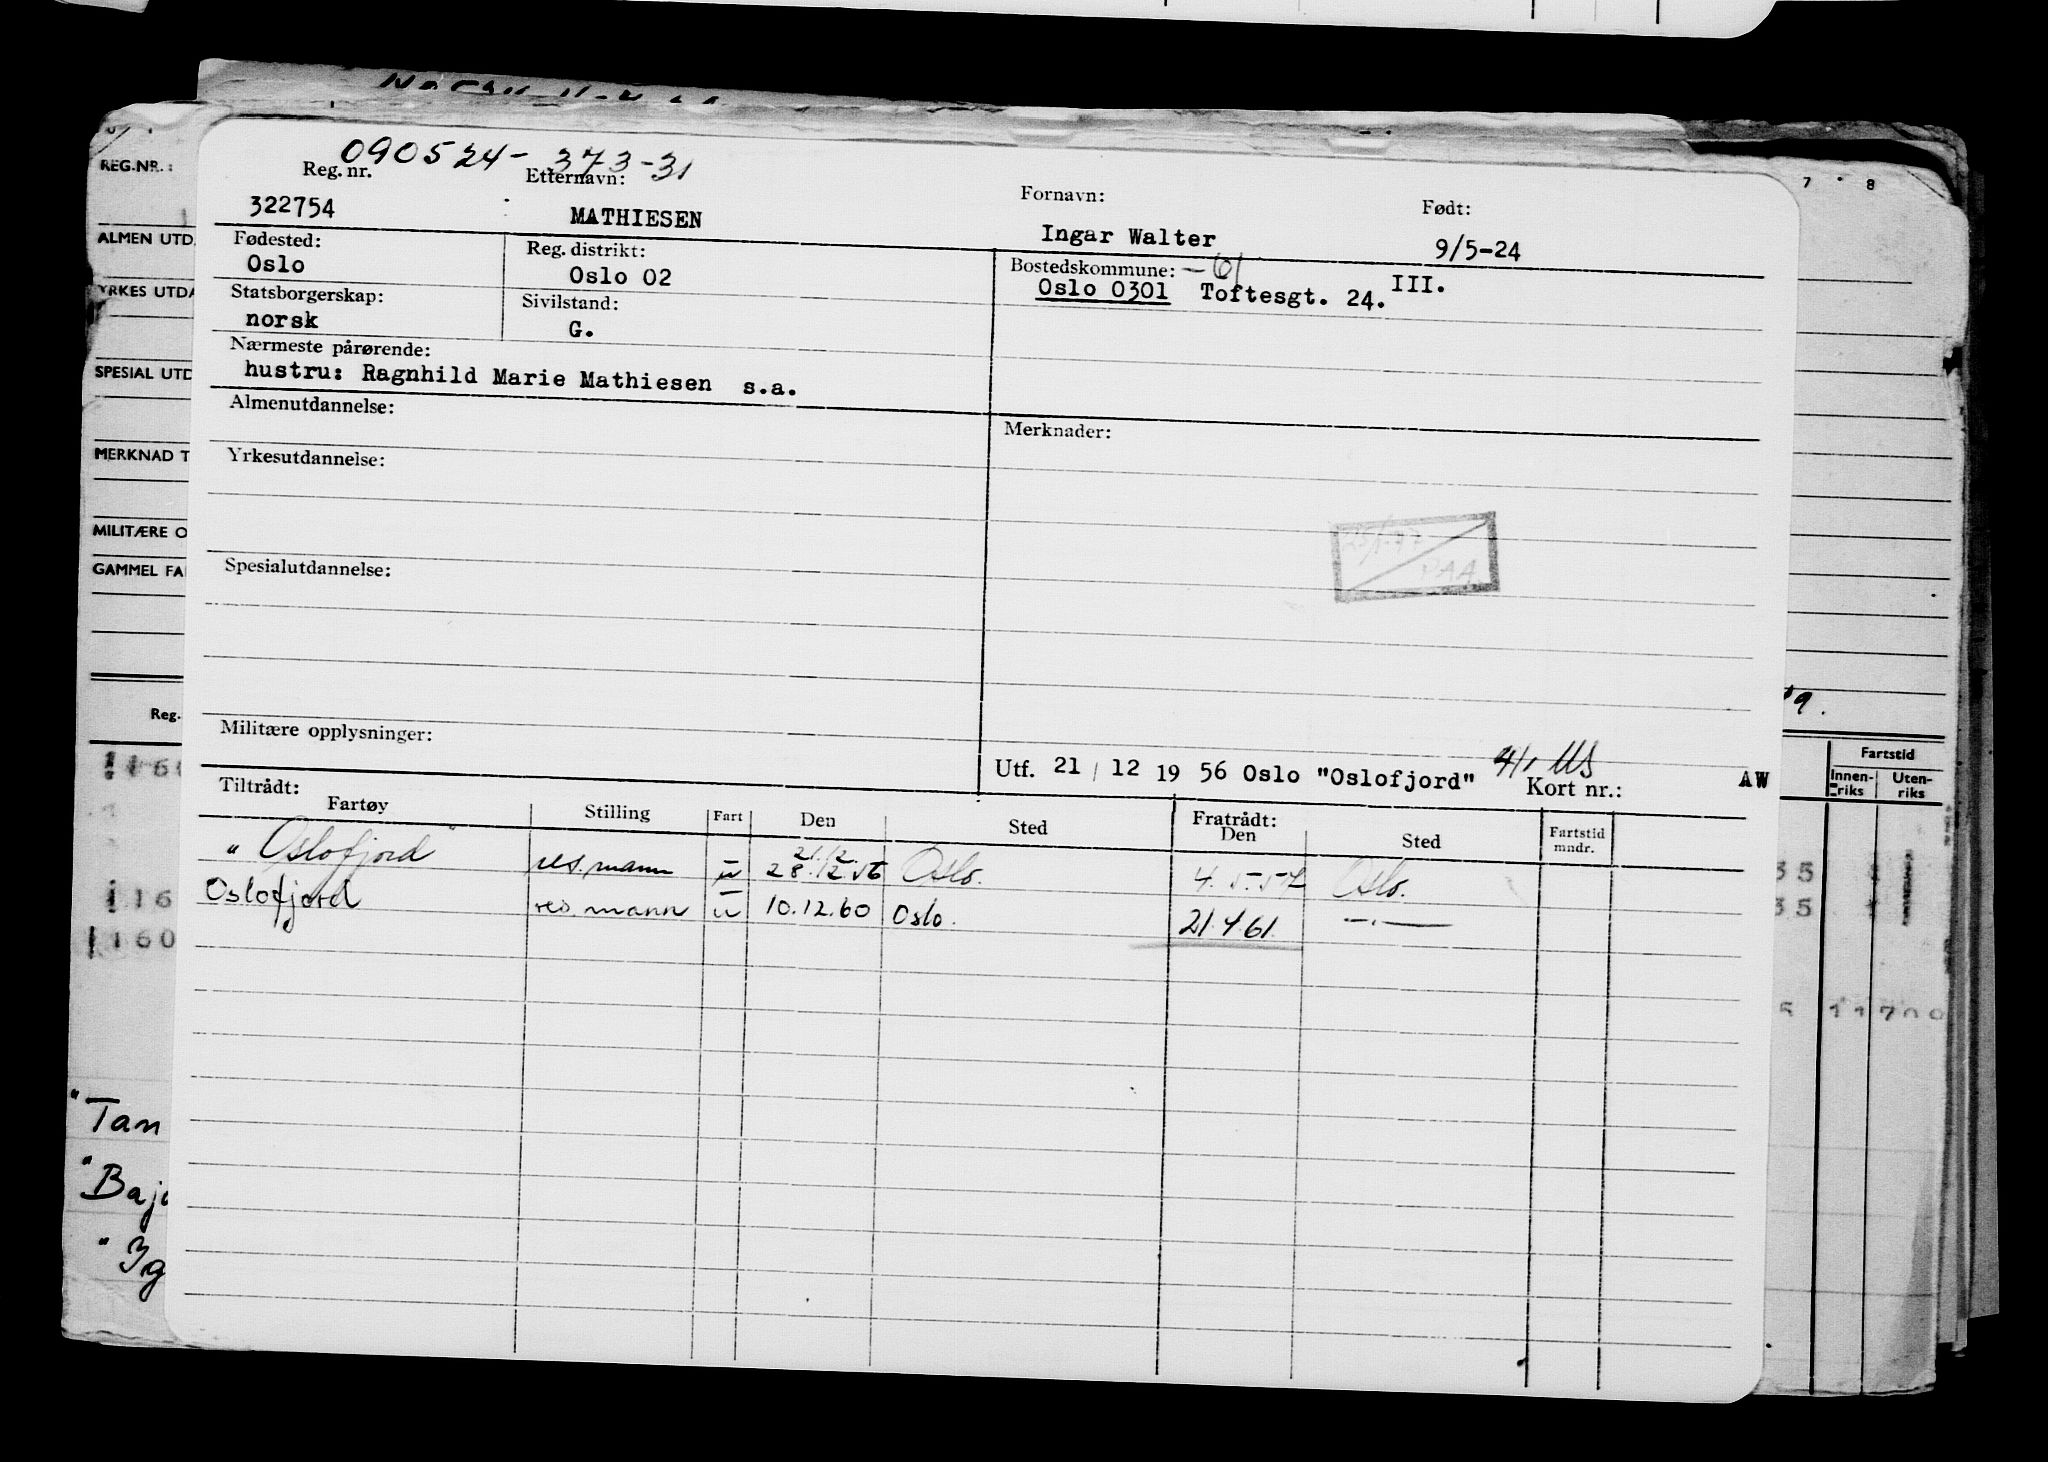 090524-373-31
Reg. nr. Etternavn: Fornavn: Født:
322754 MATHIESEN Ingar Walter 9/5-24
Fødested: Reg. distrikt: Bostedskommune: -61
Oslo Oslo 02 Oslo 0301 Toftesgt. 24. III.
Statsborgerskap: Sivilstand:
norsk G.
Nærmeste pårørende:
hustru: Ragnhild Marie Mathiesen s.a.
Almenutdannelse: Merknader:
Yrkesutdannelse:
PAA
Spesialutdannelse:
Militære opplysninger:
Utf. 21 / 12 19 56 Oslo "Oslofjord" Kort nr.: AW
Tiltrådt: Fratrådt:
Fartøy Stilling Fart Den Sted Den Sted Fartstid mndr.
"Oslofjord" res. mann u 21.12. 28.12.56 Oslo. 4.5.57 Oslo.
Oslofjord res mann u 10.12.60 Oslo. 21.4.61 -.-
REG.NR.: 7 8
ALMEN UTD
YRKES UTDA
SPESIAL UTD
MERKNAD T
MILITÆRE O
GAMMEL FA
Reg.
Fartstid
Innen-riks Uten-riks
160
35
116
35
1160
5 11700
"Tan
"Baj
"Ig